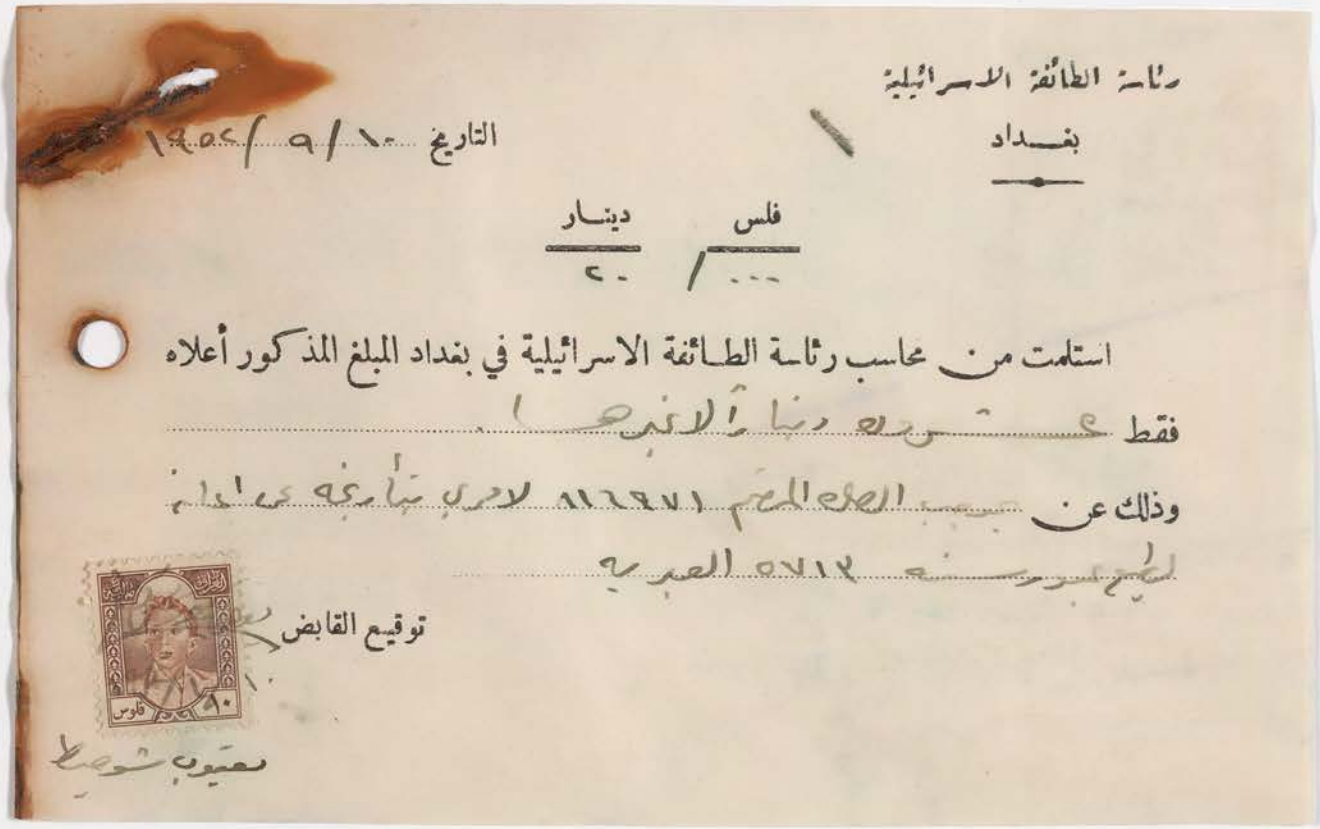 رئاسة الطائفة الاسرائيلية
بغداد
التاريخ ١٠/٩/١٩٥٢
فلس دينار
٠٠٠/ ٢٠
استلمت من محاسب رئاسة الطائفة الاسرائيلية في بغداد المبلغ المذكور أعلاه
فقط عشرون دينارآ لا غيرها
وذلك عن بموجب الصك المرقم ٨١٦٩٧١ لامري بتأريخه عن اعانة
سنة ٥٧١٣ العبرية
توقيع القابض
١٠ فلوس
يعقوب